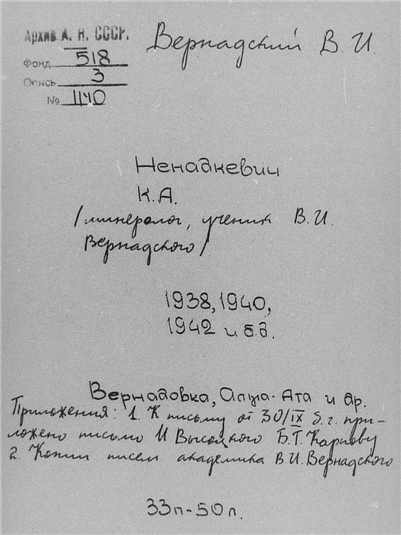 Архив А. Н. СССР.
Фонд 518
Опись 3
№ 1140
Вернадский В. И.
Ненадкевич
К.А.
/минералог, ученик В.И.
Вернадского/
1938, 1940,
1942 и б.д.
Вернадовка, Алма-Ата и др.
Приложения: 1. К письму от 30/IX б.г. при-
ложено письмо И Высоцкого Б.Г. Карпову
2. Копии писем академика В.И. Вернадского
33п-50л.